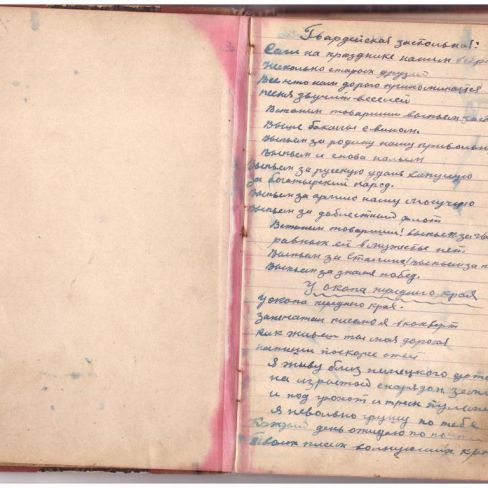 Гвардейская застольная:
Если на празднике нашем встре
Несколько старых друзей
Все что нам дорого припоминается
песня звучит веселей
Встанем товарищи выпьем за
Выше бакалы с вином.
Выпьем за родину нашу привольн
Выпьем и снова нальем
Выпьем за русскую удаль кипучую
За богатырский народ.
Выпьем за армию нашу могучую
Выпьем за доблестный флот
Встанем товарищи! выпьем за
равных ей в мужестве нет.
Выпьем за Сталина! выпьем за
Выпьем за знамя побед.
У окопа переднего края
У окопа переднего края.
Запечатал письмо я в конверт
Как живеш ты моя дорогая
напиши поскорее ответ
Я живу близ немецкого
на
и под грохот и треск пулем
Я невольно грущу по тебе
Каждый день ожидаю по
Твоих писем волнующих